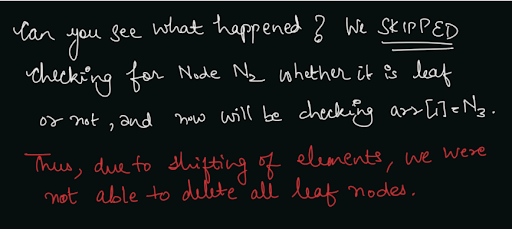 Can you see what happened? We SKIPPED
checking for Node N₂ whether it is leaf
or not, and now will be checking arr[i]=N₃.
Thus, due to shifting of elements, we were
not able to delete all leaf nodes.